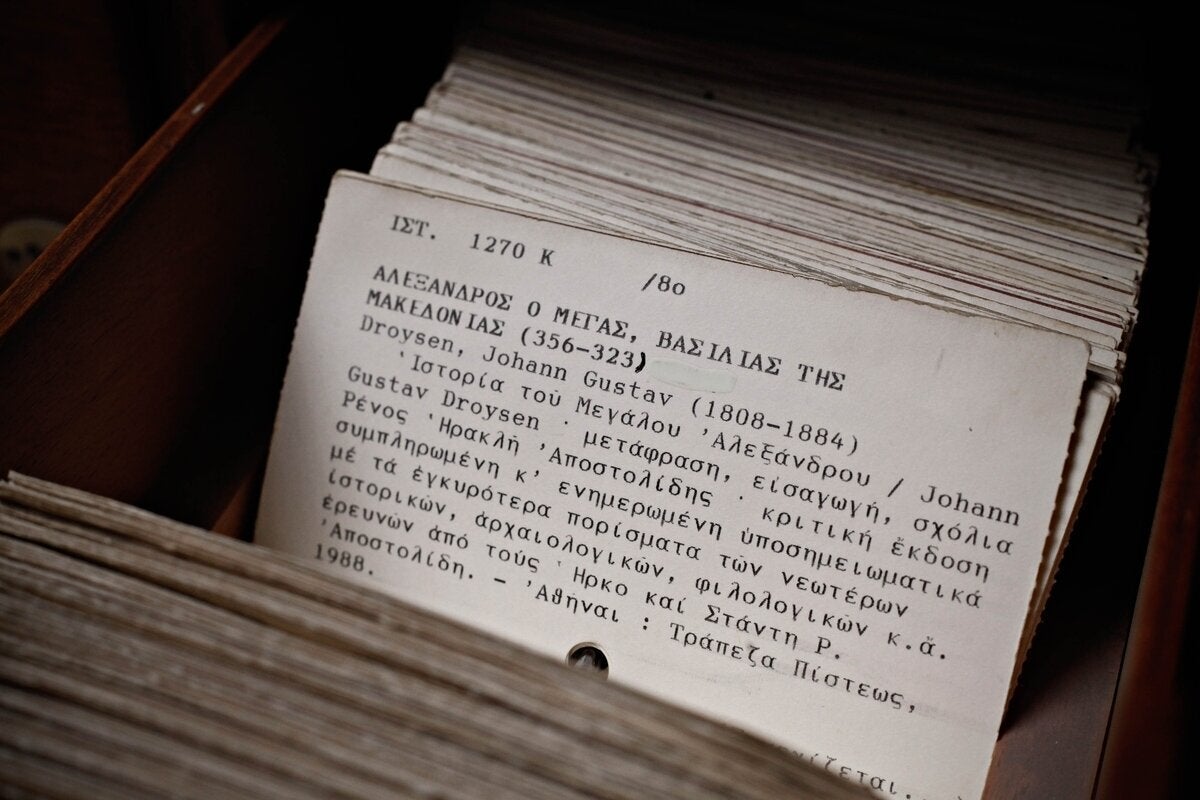 ΙΣΤ. 1270 Κ /8ο
ΑΛΕΞΑΝΔΡΟΣ Ο ΜΕΓΑΣ, ΒΑΣΙΛΙΑΣ ΤΗΣ
ΜΑΚΕΔΟΝΙΑΣ (356-323)
Droysen, Johann Gustav (1808-1884)
Ἱστορία τοῦ Μεγάλου Ἀλεξάνδρου / Johann
Gustav Droysen · μετάφραση, εἰσαγωγή, σχόλια
Ρένος Ἡρακλῆ Ἀποστολίδης · κριτική ἔκδοση
συμπληρωμένη κ' ενημερωμένη ὑποσημειωματικά
μέ τά ἐγκυρότερα πορίσματα τῶν νεωτέρων
ἱστορικῶν, ἀρχαιολογικῶν, φιλολογικῶν κ.ἄ.
ἐρευνῶν ἀπό τούς Ἡρκο καί Στάντη Ρ.
Ἀποστολίδη. - Ἀθῆναι : Τράπεζα Πίστεως,
1988.